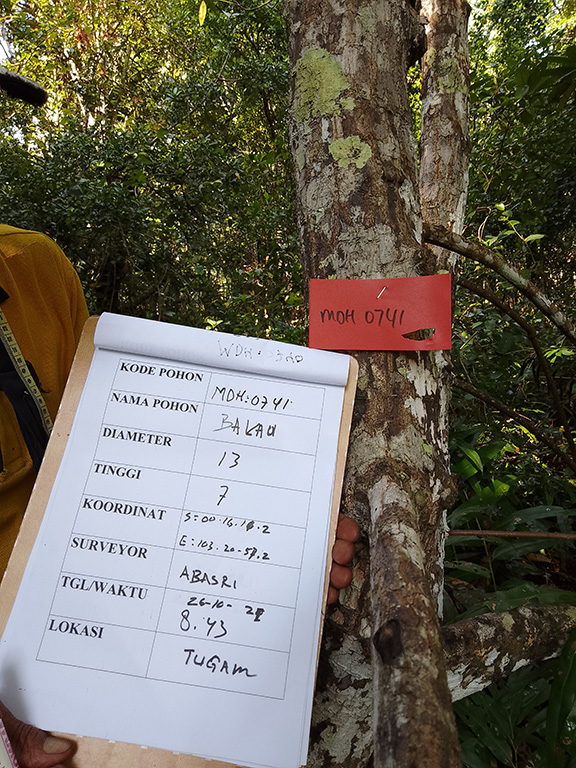 MDH 0741
KODE POHON MDH:0741
NAMA POHON BALAU
DIAMETER 13
TINGGI 7
KOORDINAT S=00.16.18.2
E:103.20-57.2
SURVEYOR ABASRI
TGL/WAKTU 26-10-21
8.43
LOKASI TUGAM